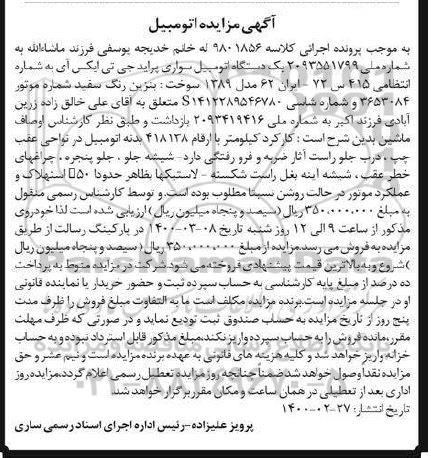 آگهی مزایده اتومبیل
به موجب پرونده اجرائی کلاسه ۹۸۰۱۸۵۶ له خانم خدیجه یوسفی فرزند ماشاءالله به
شماره ملی ۲۰۹۳۵۵۱۷۹۹ یک دستگاه اتومبیل سواری پراید جی تی ایکس آی به شماره
انتظامی ۴۱۵ س ۷۲ - ایران ۶۲ مدل ۱۳۸۹ سوخت : بنزین رنگ سفید شماره موتور
۳۶۵۳۰۸۴ و شماره شاسی S۱۴۱۲۲۸۹۵۴۶۷۸۰ متعلق به آقای علی خالق زاده زرین
آبادی فرزند اکبر به شماره ملی ۲۰۹۳۴۱۹۴۱۶ بازداشت و طبق نظر کارشناس اوصاف
ماشین بدین شرح است : کارکرد کیلومتر با ارقام ۴۱۸۱۳۸ بدنه اتومبیل در نواحی عقب
چپ ، درب جلو راست آثار ضربه و فرو رفتگی دارد - شیشه جلو ، جلو پنجره ، چراغهای
خطر عقب ، شیشه اینه بغل راست شکسته - لاستیکها بظاهر حدودا ۵۰٪ استهلاک و
عملکرد موتور در حالت روشن نسبتا مطلوب بوده است.و توسط کارشناس رسمی منقول
به مبلغ ۳۵۰.۰۰۰.۰۰۰ ریال (سیصد و پنجاه میلیون ریال ) ارزیابی شده است لذا خودروی
مذکور از ساعت ۹ الی ۱۲ روز شنبه تاریخ ۰۸-۰۳-۱۴۰۰ در پارکینگ رسالت از طریق
مزایده به فروش می رسد.مزایده از مبلغ ۳۵۰.۰۰۰.۰۰۰ ریال ( سیصد و پنجاه میلیون ریال
)شروع و به بالاترین قیمت پیشنهادی فروخته می شود شرکت در مزایده منوط به پرداخت
ده درصد از مبلغ پایه کارشناسی به حساب سپرده ثبت و حضور خریدار یا نماینده قانونی
او در جلسه مزایده است.برنده مزایده مکلف است ما به التفاوت مبلغ فروش را ظرف مدت
پنج روز از تاریخ مزایده به حساب صندوق ثبت تودیع نماید و در صورتی که ظرف مهلت
مقرر مانده فروش را به حساب سپرده واریز نکند،مبلغ مذکور قابل استرداد نبوده و به حساب
خزانه واریز خواهد شد و کلیه هزینه های قانونی به عهده برنده مزایده است ونیم عشر و حق
مزایده نقدا وصول خواهد شد ضمنا چنانچه روز مزایده تعطیل رسمی اعلام گردد،مزایده روز
اداری بعد از تعطیلی در همان ساعت و مکان مقرر برگزار خواهد شد.
تاریخ انتشار: ۲۷-۰۲-۱۴۰۰
پرویز علیزاده-رئیس اداره اجرای اسناد رسمی ساری